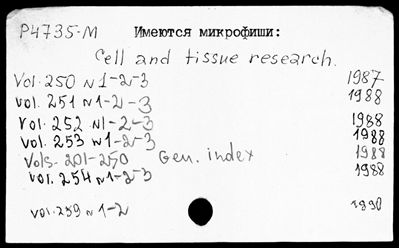 P4735-M Имеются микрофиши:
Cell and tissue research.
Vol. 250 N 1-2-3 1987
vol. 251 N 1-2-3 1988
vol. 252 N 1-2-3 1988
vol. 253 N 1-2-3 1988
Vols. 201-250 Gen. index 1988
vol. 254 N 1-2-3 1988
vol. 259 N 1-2 1990